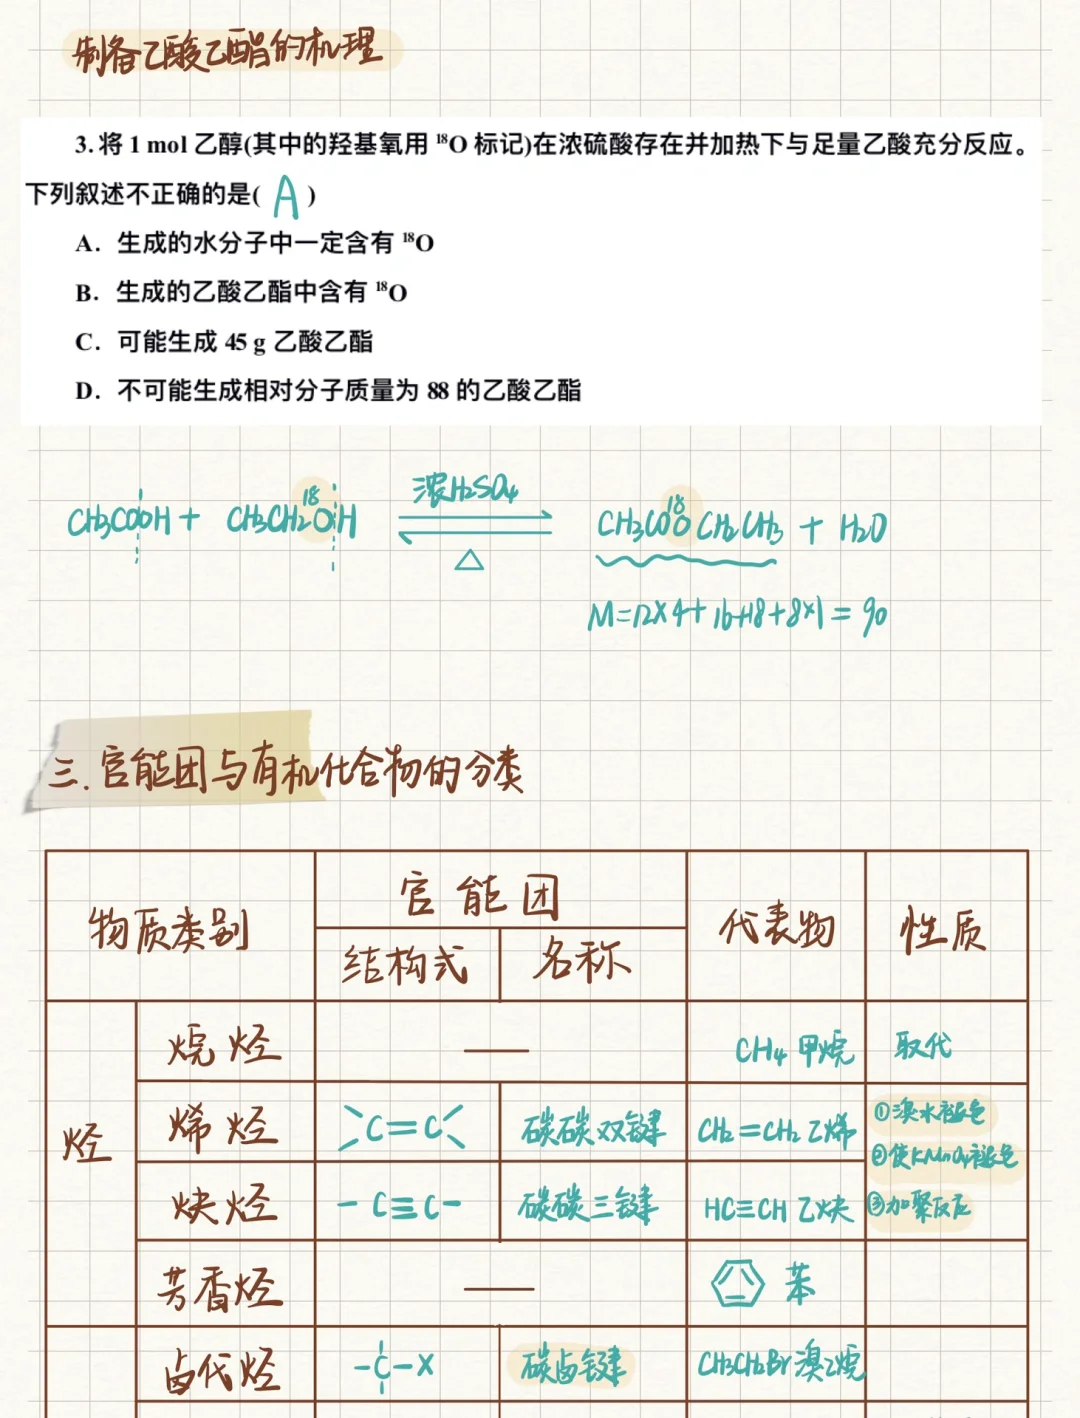 制备乙酸乙酯的机理
3.将 1 mol 乙醇(其中的羟基氧用 ¹⁸O 标记)在浓硫酸存在并加热下与足量乙酸充分反应。
下列叙述不正确的是( A )
A．生成的水分子中一定含有 ¹⁸O
B．生成的乙酸乙酯中含有 ¹⁸O
C．可能生成 45 g 乙酸乙酯
D．不可能生成相对分子质量为 88 的乙酸乙酯
CH₃COOH + CH₃CH₂¹⁸OH ⇌ 浓H₂SO₄ △ CH₃CO¹⁸OCH₂CH₃ + H₂O
M=12×4+16+18+8×1=90
三.官能团与有机化合物的分类
物质类别 官能团 代表物 性质
结构式 名称
烃
烷烃 — CH₄ 甲烷 取代
烯烃 >C=C< 碳碳双键 CH₂=CH₂ 乙烯 ①溴水褪色
②使KMnO₄褪色
炔烃 -C≡C- 碳碳三键 HC≡CH 乙炔 ③加聚反应
芳香烃 — 苯
卤代烃 -C-X 碳卤键 CH₃CH₂Br 溴乙烷